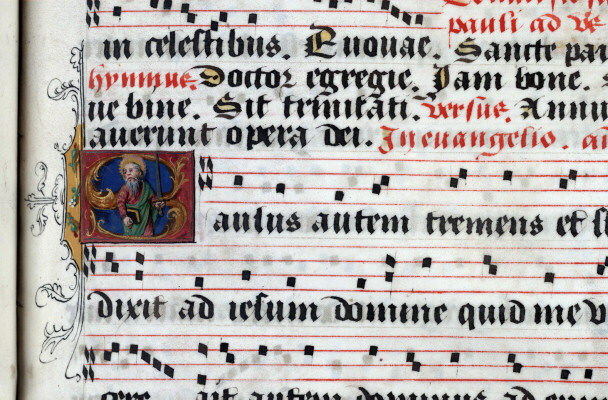 pauli ad ve
in celestibus. Euouae. Sancte pau
hymnus. Doctor egregie. Jam bone.
ne bine. Sit trinitati. versus. Annu
auerunt opera dei. In euangelio.
aulus autem tremens et s
dixit ad iesum domine quid me v
cere ait autem dominus ad eum